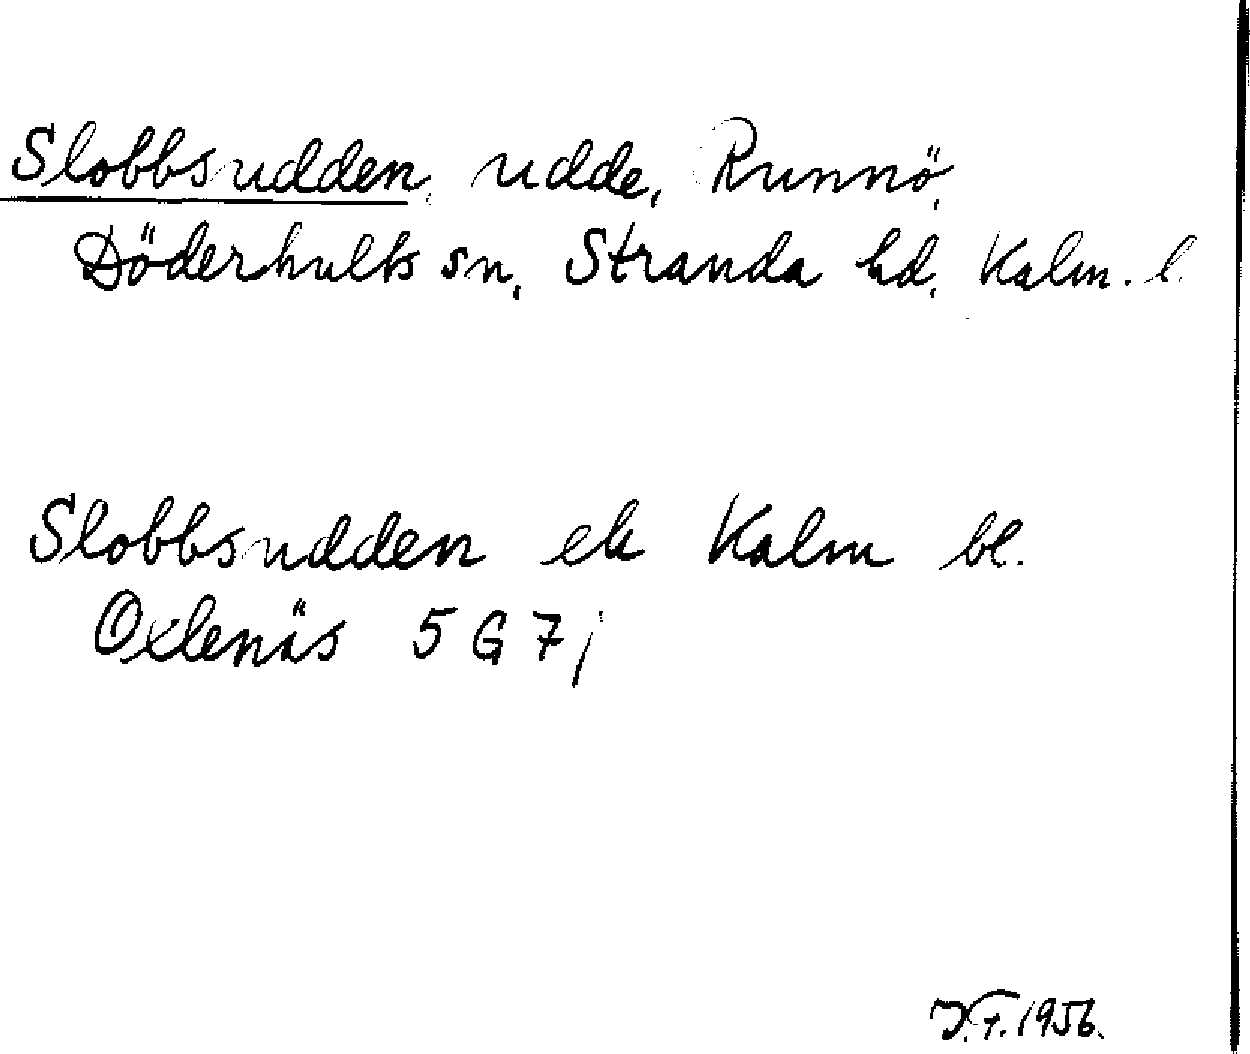 Slobbsudden, udde, Runnö,
Döderhults sn, Stranda hd, Kalm. l.
Slobbsudden ek Kalm bl.
Oxlenäs 5 G 7 j
J.F. 1956.